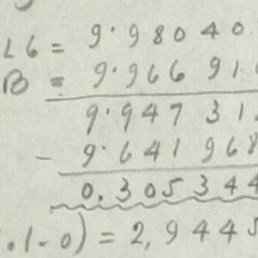 L6 = 9.98040
B = 9.96691
9.94731
- 9.641968
0.305344
.1-0) = 2,9445